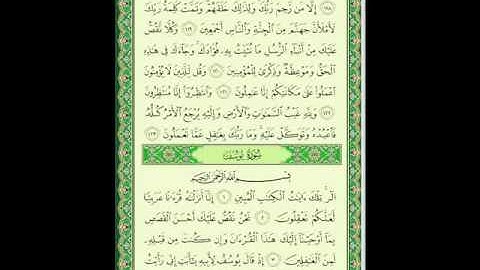 إِلَّا مَن رَّحِمَ رَبُّكَ وَلِذَٰلِكَ خَلَقَهُمْ وَتَمَّتْ كَلِمَةُ رَبِّكَ
لَأَمْلَأَنَّ جَهَنَّمَ مِنَ الْجِنَّةِ وَالنَّاسِ أَجْمَعِينَ ١١٩ وَكُلًّا نَّقُصُّ
عَلَيْكَ مِنْ أَنبَاءِ الرُّسُلِ مَا نُثَبِّتُ بِهِ فُؤَادَكَ وَجَاءَكَ فِي هَٰذِهِ
الْحَقُّ وَمَوْعِظَةٌ وَذِكْرَىٰ لِلْمُؤْمِنِينَ ١٢٠ وَقُل لِّلَّذِينَ لَا يُؤْمِنُونَ
اعْمَلُوا عَلَىٰ مَكَانَتِكُمْ إِنَّا عَامِلُونَ ١٢١ وَانتَظِرُوا إِنَّا مُنتَظِرُونَ
١٢٢ وَلِلَّهِ غَيْبُ السَّمَاوَاتِ وَالْأَرْضِ وَإِلَيْهِ يُرْجَعُ الْأَمْرُ كُلُّهُ
فَاعْبُدْهُ وَتَوَكَّلْ عَلَيْهِ وَمَا رَبُّكَ بِغَافِلٍ عَمَّا تَعْمَلُونَ ١٢٣
سُورَةُ يُوسُفَ
بِسْمِ اللَّهِ الرَّحْمَٰنِ الرَّحِيمِ
الر تِلْكَ آيَاتُ الْكِتَابِ الْمُبِينِ ١ إِنَّا أَنزَلْنَاهُ قُرْآنًا عَرَبِيًّا
لَّعَلَّكُمْ تَعْقِلُونَ ٢ نَحْنُ نَقُصُّ عَلَيْكَ أَحْسَنَ الْقَصَصِ
بِمَا أَوْحَيْنَا إِلَيْكَ هَٰذَا الْقُرْآنَ وَإِن كُنتَ مِن قَبْلِهِ
لَمِنَ الْغَافِلِينَ ٣ إِذْ قَالَ يُوسُفُ لِأَبِيهِ يَا أَبَتِ إِنِّي رَأَيْتُ